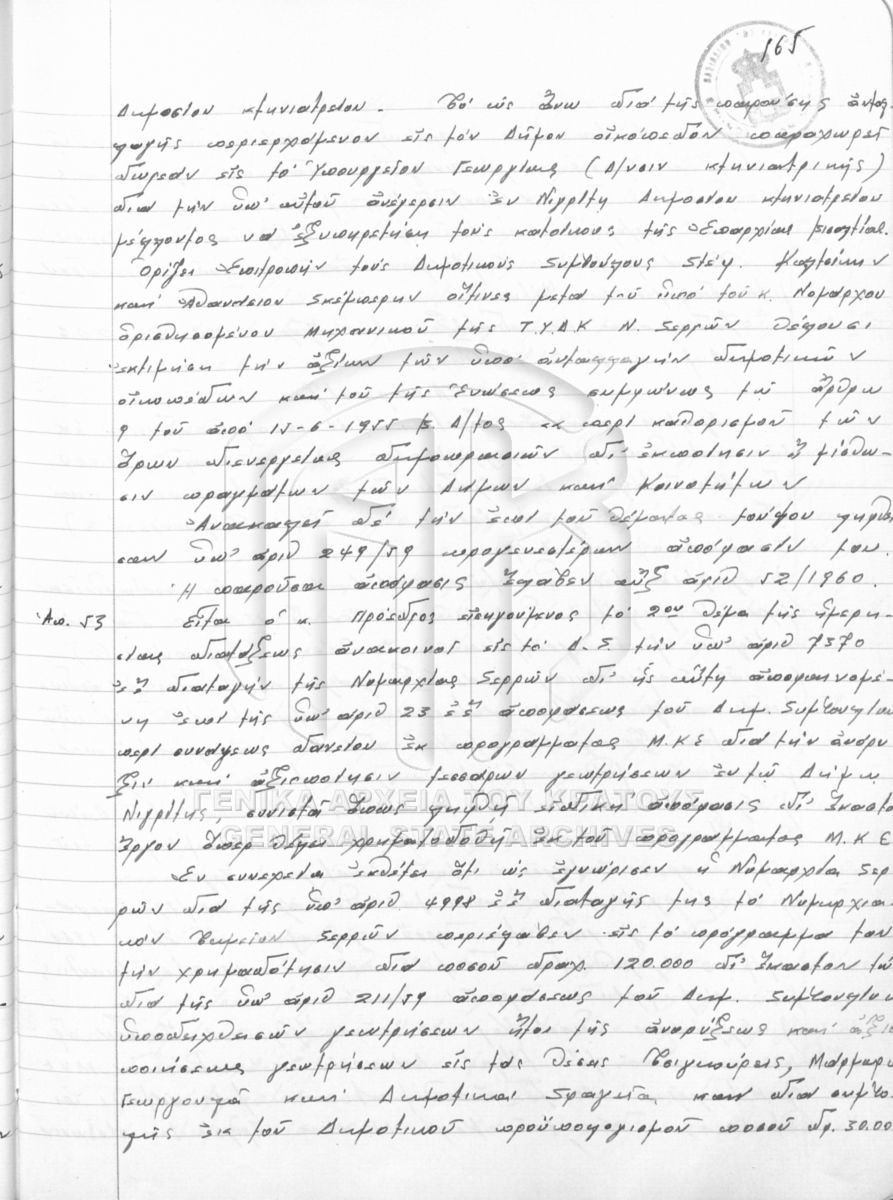 165
Δημοσίου κτηνιατρείου. Τό ὡς ἄνω διά τῆς παρούσης ἀνταλ
λαγῆς περιερχόμενον εἰς τόν Δῆμον οἰκόπεδον παραχωρεῖ
δωρεάν εἰς τό Ὑπουργεῖον Γεωργίας (Δ/νσιν κτηνιατρικῆς)
διά τήν ὑπ' αὐτοῦ ἀνέγερσιν ἐν Νιγρίτῃ Δημοσίου κτηνιατρείου
μέλλοντος νά ἐξυπηρετήσῃ τούς κατοίκους τῆς Ἐπαρχίας Βισαλτίας.
Ὁρίζει Ἐπιτροπήν τούς Δημοτικούς Συμβούλους Στέφ. Καλτσίκην
καί Ἀθανάσιον Σκέμπερην οἵτινες μετά τοῦ ὑπό τοῦ κ. Νομάρχου
ὁρισθησομένου Μηχανικοῦ τῆς Τ.Υ.Δ.Κ Ν. Σερρῶν θέλουσι
ἐκτιμήσῃ τήν ἀξίαν τῶν ὑπό ἀνταλλαγήν δημοτικῶν
οἰκοπέδων καί τοῦ τῆς Ἑνώσεως συμφώνως τῷ ἄρθρῳ
9 τοῦ ἀπό 15-6-1955 Β. Δ/τος «περί καθορισμοῦ τῶν
ὅρων διενεργείας δημοπρασιῶν δι' ἐκποίησιν ἤ μίσθω-
σιν πραγμάτων τῶν Δήμων καί Κοινοτήτων
Ἀνακαλεῖ δέ τήν ἐπί τοῦ θέματος τούτου ληφθεῖ
σαν ὑπ' ἀριθ 249/59 προγενεστέραν ἀπόφασίν του.
Ἡ παροῦσα ἀπόφασις ἔλαβεν αὔξ ἀριθ 52/1960.
Ἀπ. 53 Εἶτα ὁ κ. Πρόεδρος εἰσηγούμενος τό 2ον θέμα τῆς ἡμερη-
σίας διατάξεως ἀνακοινοῖ εἰς τό Δ.Σ. τήν ὑπ' ἀριθ 7570
ἐ.ἔ διαταγήν τῆς Νομαρχίας Σερρῶν δι' ἧς αὕτη ἀποφαινομέ-
νη ἐπί τῆς ὑπ' ἀριθ 23 ἐ.ἔ ἀποφάσεως τοῦ Δημ. Συμβουλίου
περί συνάψεως δανείου ἐκ προγράμματος Μ.Κ.Ε διά τήν ἀνόρυ
ξιν καί ἀξιοποίησιν τεσσάρων γεωτρήσεων ἐν τῷ Δήμῳ
Νιγρίτης, συνιστᾷ ὅπως ληφθῇ εἰδική ἀπόφασις δι' ἕκαστον
ἔργον ὅπερ θέλει χρηματοδοτηθῇ ἐκ τοῦ προγράμματος Μ.Κ.Ε
Ἐν συνεχείᾳ ἐκθέτει ὅτι ὡς ἐγνώρισεν ἡ Νομαρχία Σερ
ρῶν διά τῆς ὑπ' ἀριθ. 4998 ἐ.ἔ διαταγῆς της τό Νομαρχια-
κόν Ταμεῖον Σερρῶν περιέλαβεν εἰς τό πρόγραμμά του
τήν χρηματοδότησιν διά ποσοῦ δραχ. 120.000 δι' ἕκαστον τῶν
διά τῆς ὑπ' ἀριθ 211/59 ἀποφάσεως τοῦ Δημ. Συμβουλίου
ὑποδειχθεισῶν γεωτρήσεων ἤτοι τῆς ἀνορύξεως καί ἀξιο
ποιήσεως γεωτρήσεων εἰς τάς θέσεις Τσιγκούρεις, Μάρμαρα
Γεωργουλᾶ καί Δημοτικά Σφαγεῖα καί διά συμβο-
λῆς ἐκ τοῦ Δημοτικοῦ προϋπολογισμοῦ ποσοῦ δρ. 30.00
ΓΕΝΙΚΑ ΑΡΧΕΙΑ ΤΟΥ ΚΡΑΤΟΥΣ
GENERAL STATE ARCHIVES